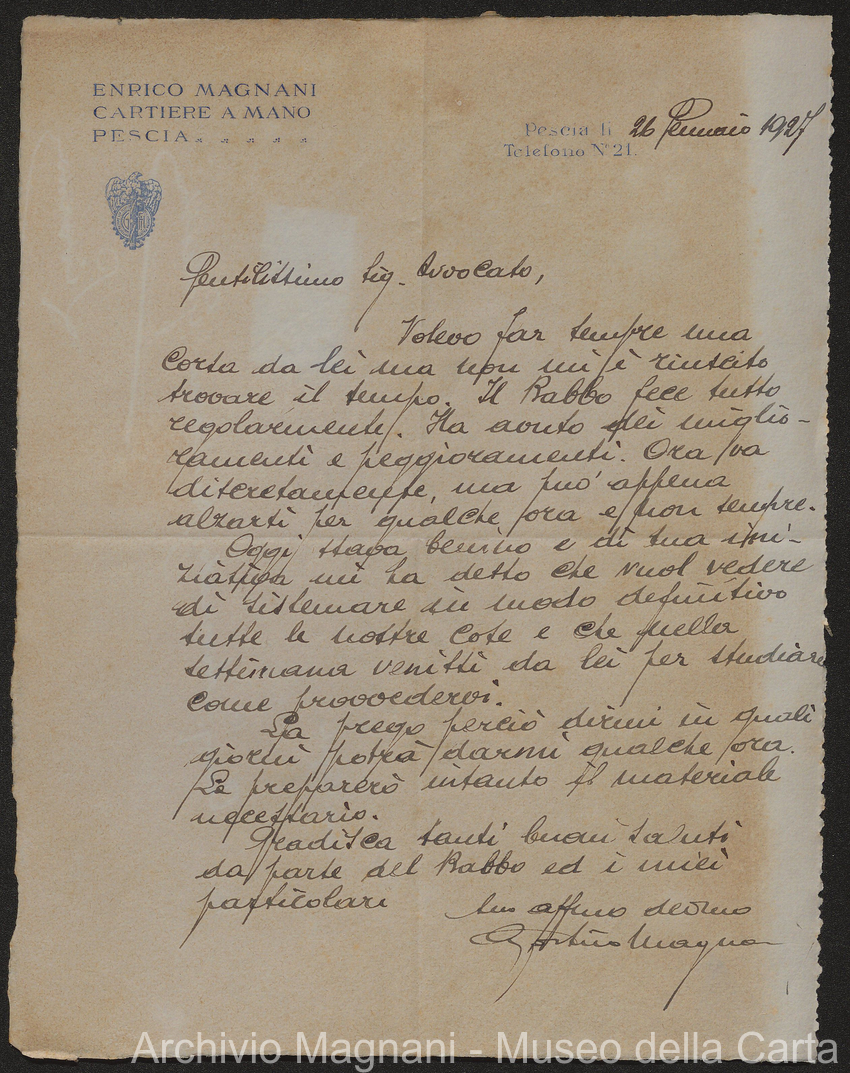 ENRICO MAGNANI
CARTIERE A MANO
PESCIA . . . . .
Pescia li 26 Gennaio 1927
Telefono N° 21.
Gentilissimo Sig. Avvocato,
Volevo far sempre una
corsa da lei ma non mi è riuscito
trovare il tempo. Il Babbo fece tutto
regolarmente. Ha avuto dei miglio-
ramenti e peggioramenti. Ora va
discretamente, ma può appena
alzarsi per qualche ora e non sempre.
Oggi stava benino e di sua ini-
ziativa mi ha detto che vuol vedere
di sistemare in modo definitivo
tutte le nostre cose e che nella
settimana venissi da lei per studiare
come provvedervi.
La prego perciò dirmi in quali
giorni potrà darmi qualche ora.
Le preparerò intanto il materiale
necessario.
Gradisca tanti buoni saluti
da parte del Babbo ed i miei
particolari
Suo affmo devmo
Magnani
Archivio Magnani - Museo della Carta